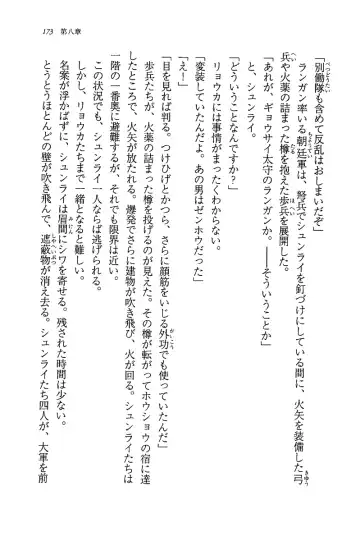 173　第八章
「別働隊も含めて反乱はおじまいだぞ」
ランガン率いる朝廷軍は、弩兵でシュンライを釘づけにしている間に、火矢を装備した弓
兵や火薬の詰まった樽を抱えた歩兵を展開した。
「あれが、ギョウサイ太守のランガンか。――そういうことか」
と、シュンライ。
「どういうことなんですか？」
リョウカには事情がまったくわからない。
「変装していたんだよ。あの男はゼンホウだった」
「え！」
「目を見れば判る。つけひげとかつら、さらに顔筋をいじる外功でも使っていたんだ」
歩兵たちが、火薬の詰まった樽を投げるのが見えた。その樽が転がってホウショウの宿に達
したところで、火矢が放たれる。爆発でさらに建物が吹き飛び、火が回る。シュンライたちは
一階の一番奥に避難するが、それでも限界は近い。
この状況でも、シュンライ一人ならば逃げられる。
しかし、リョウカたちまで一緒となると難しい。
名案が浮かばずに、シュンライは眉間にシワを寄せる。残された時間は少ない。
とうとうほとんどの壁が吹き飛んで、遮蔽物が消え去る。シュンライたち四人が、大軍を前